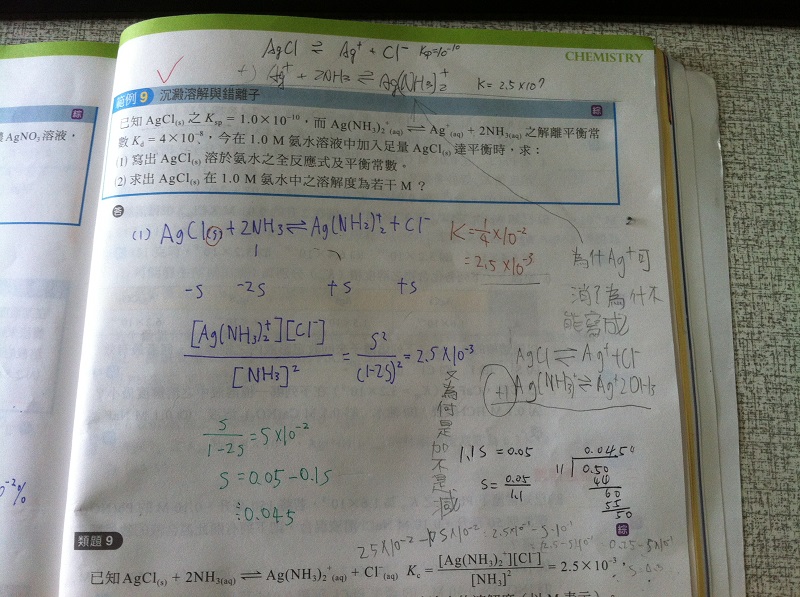 AgCl ⇌ Ag⁺ + Cl⁻ Ksp=10⁻¹⁰
+) Ag⁺ + 2NH₃ ⇌ Ag(NH₃)₂⁺ K = 2.5×10⁷
CHEMISTRY
範例 9 沉澱溶解與錯離子
綜
已知 AgCl(s) 之 Ksp = 1.0×10⁻¹⁰,而 Ag(NH₃)₂⁺(aq) ⇌ Ag⁺(aq) + 2NH₃(aq) 之解離平衡常
數 Kd = 4×10⁻⁸,今在 1.0 M 氨水溶液中加入足量 AgCl(s) 達平衡時,求:
(1) 寫出 AgCl(s) 溶於氨水之全反應式及平衡常數。
(2) 求出 AgCl(s) 在 1.0 M 氨水中之溶解度為若干 M?
AgNO₃ 溶液,
答
(1) AgCl(s) + 2NH₃ ⇌ Ag(NH₂)₂⁺ + Cl⁻
1
-s -2s +s +s
K = 1/4 ×10⁻²
= 2.5×10⁻³
[Ag(NH₃)₂⁺][Cl⁻] / [NH₃]² = s²/(1-2s)² = 2.5×10⁻³
為什Ag⁺可
消?為什不
能寫成
AgCl ⇌ Ag⁺+Cl⁻
+) Ag(NH₃)₂⁺ ⇌ Ag⁺2NH₃
又為何是加不是減
s/(1-2s) = 5×10⁻²
s = 0.05-0.1s
≒0.045
1.1s = 0.05
s = 0.05/1.1
0.0454
11 0.50
44
60
55
50
⁻²%
綜
類題 9
已知 AgCl(s) + 2NH₃(aq) ⇌ Ag(NH₃)₂⁺(aq) + Cl⁻(aq) Kc = [Ag(NH₃)₂⁺][Cl⁻] / [NH₃]² = 2.5×10⁻³,